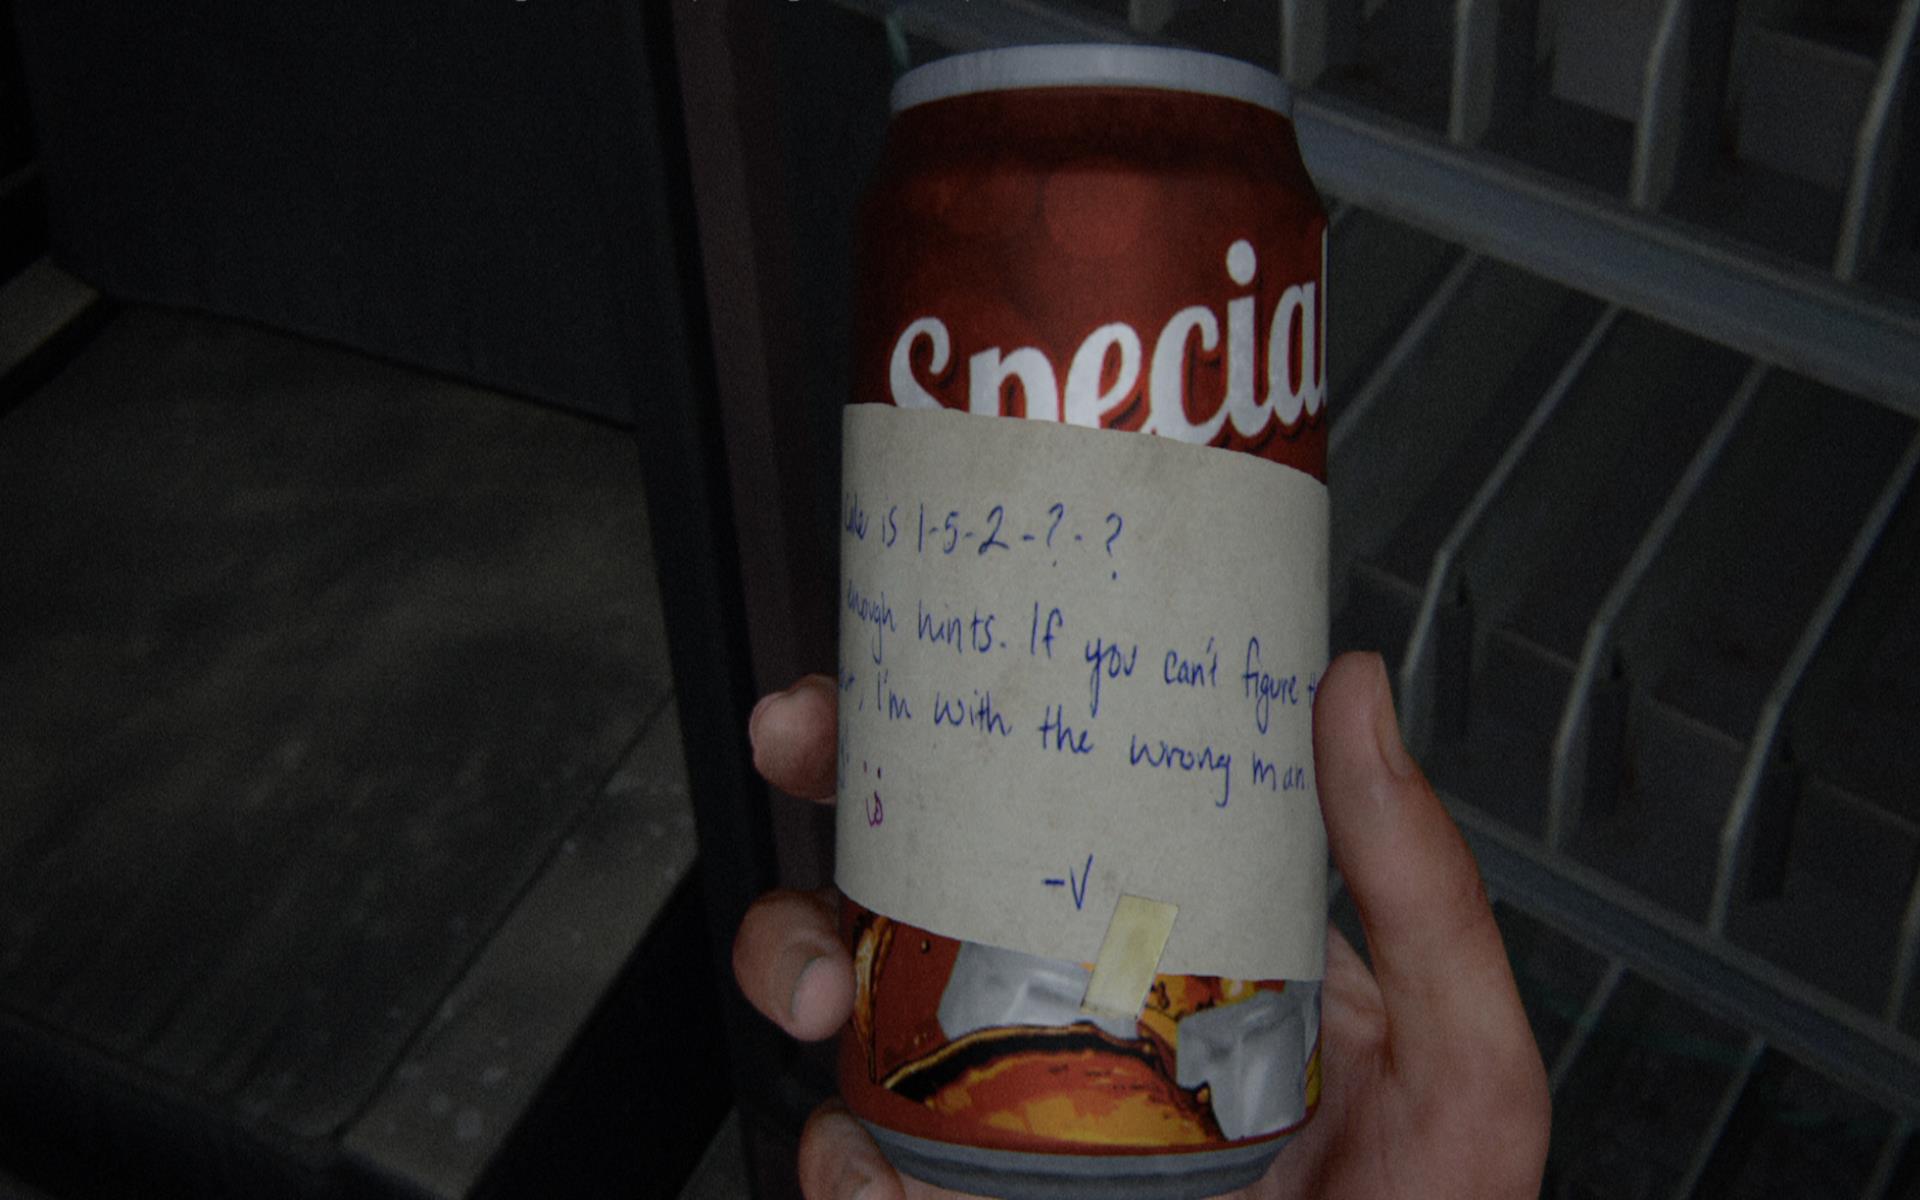 Special
is 1-5-2-?-?
enough hints. If you can't figure
, I'm with the wrong man.
-V